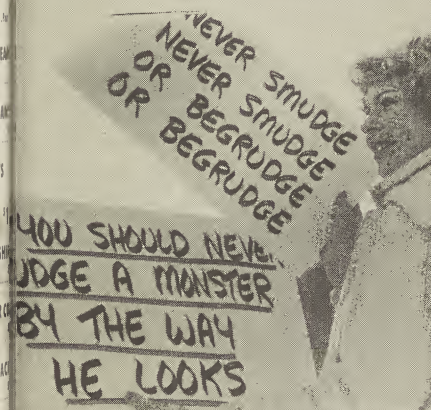 NEVER SMUDGE
NEVER SMUDGE
OR BEGRUDGE
OR BEGRUDGE
YOU SHOULD NEVE
UDGE A MONSTER
BY THE WAY
HE LOOKS